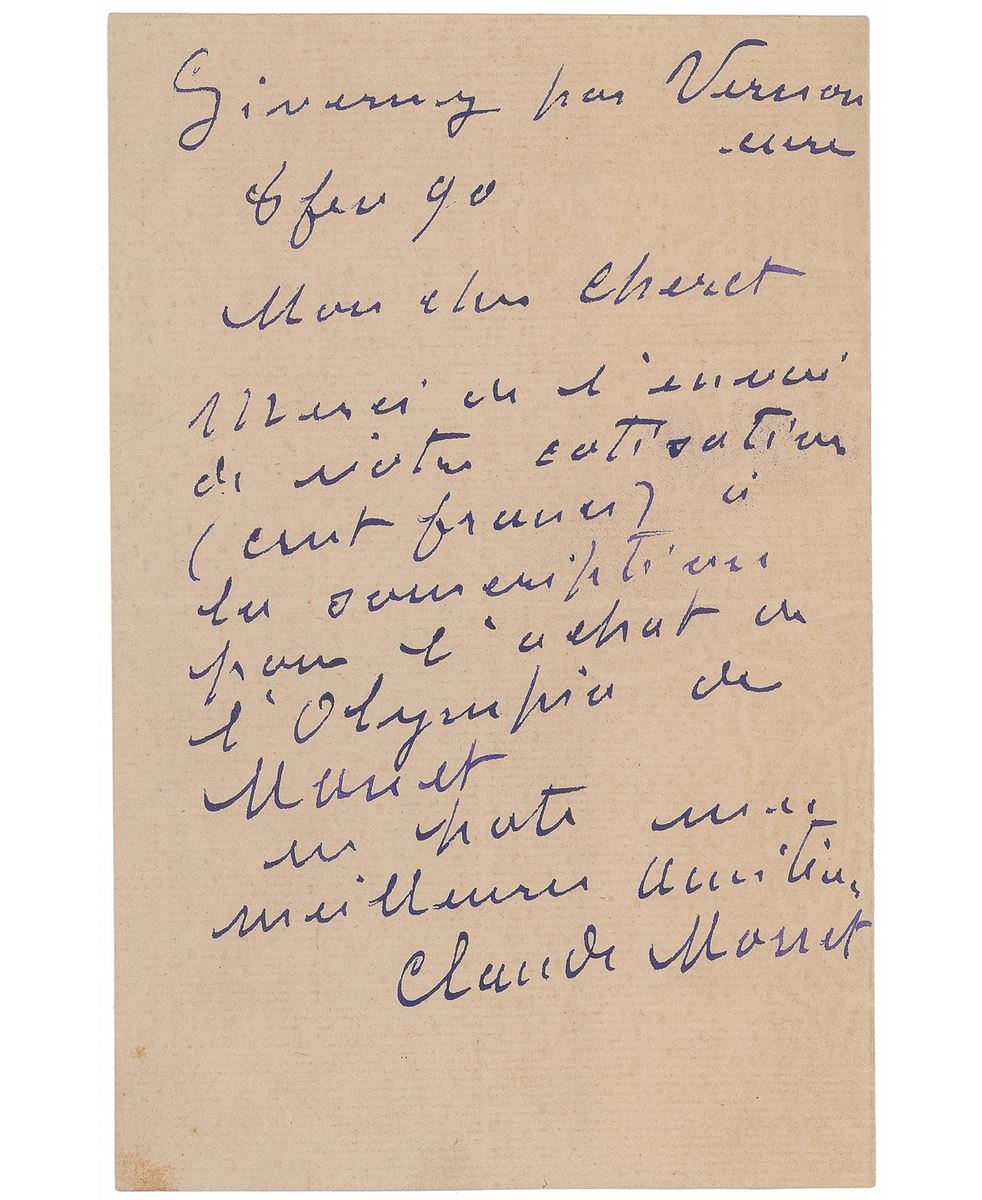 Giverny par Vernon
eure
8 fev 90
Mon cher Cheret
Merci de l'envoi
de votre cotisation
(cent francs) à
la souscription
pour l'achat de
l'Olympia de
Manet
en hate mes
meilleures amitiés
Claude Monet